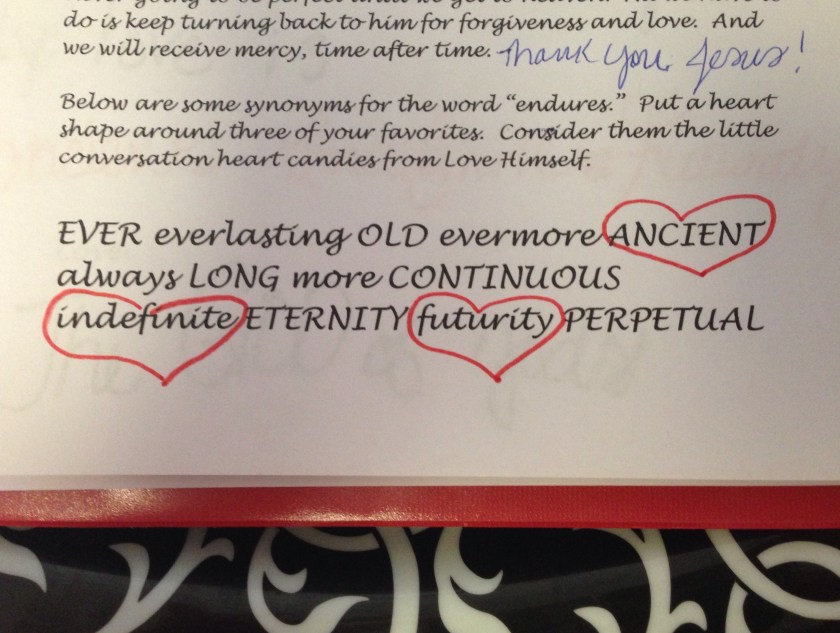 do is keep turning back to him for forgiveness and love. And
we will receive mercy, time after time. Thank you Jesus!
Below are some synonyms for the word “endures.” Put a heart
shape around three of your favorites. Consider them the little
conversation heart candies from Love Himself.
EVER everlasting OLD evermore ANCIENT
always LONG more CONTINUOUS
indefinite ETERNITY futurity PERPETUAL